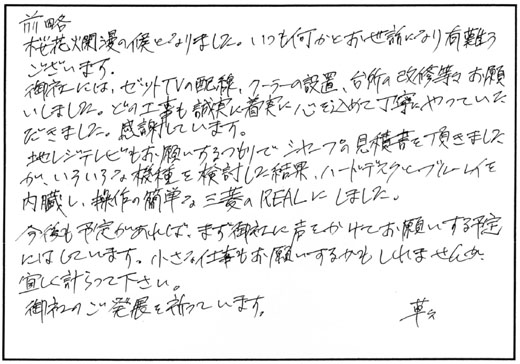 前略
桜花爛漫の候となりました。いつも何かとお世話になり有難う
ございます。
御社には、ゼットTVの配線、クーラーの設置、台所の改修等々お願
いしました。どの工事も誠実に着実に心を込めて丁寧にやっていた
だきました。感謝しています。
地レジテレビもお願いするつもりで、シャープの見積書を頂きました
が、いろいろな機種を検討した結果、ハードデスクとブルーレイを
内臓し、操作の簡単な三菱のREALにしました。
今後も予定があれば、まず御社に声をかけてお願いする予定
にはしています。小さな仕事もお願いするかもしれませんが
宜しく計らって下さい。
御社のご発展を祈っています。
草々